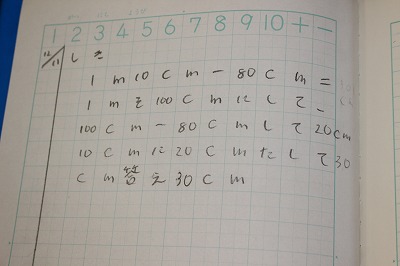 1 2 3 4 5 6 7 8 9 10 + -
12/11 しき
1m10cm-80cm=
1mを100cmにして、
100cm-80cmして20cm
10cmに20cmたして30
cm答え30cm